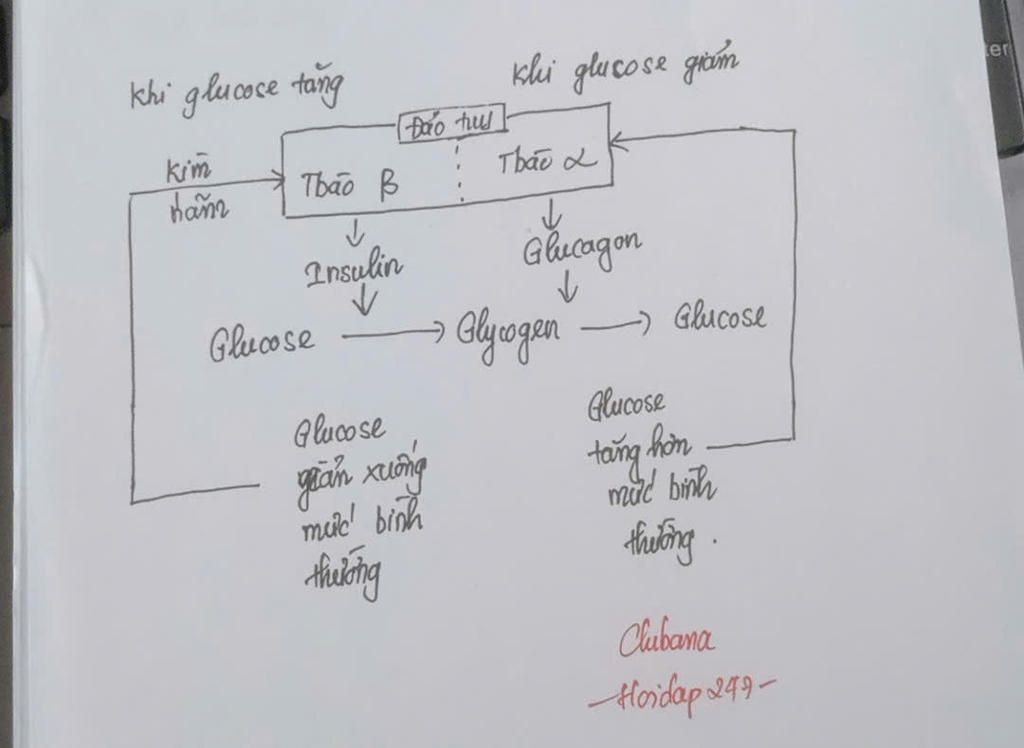 khi glucose tăng
khi glucose giảm
Đảo tuỵ
kìm
hãm
Tbào β
Tbào α
Insulin
Glucagon
Glucose
Glycogen
Glucose
Glucose
giảm xuống
mức bình
thường
Glucose
tăng hơn
mức bình
thường.
Clubana
-Hoidap247-
ter